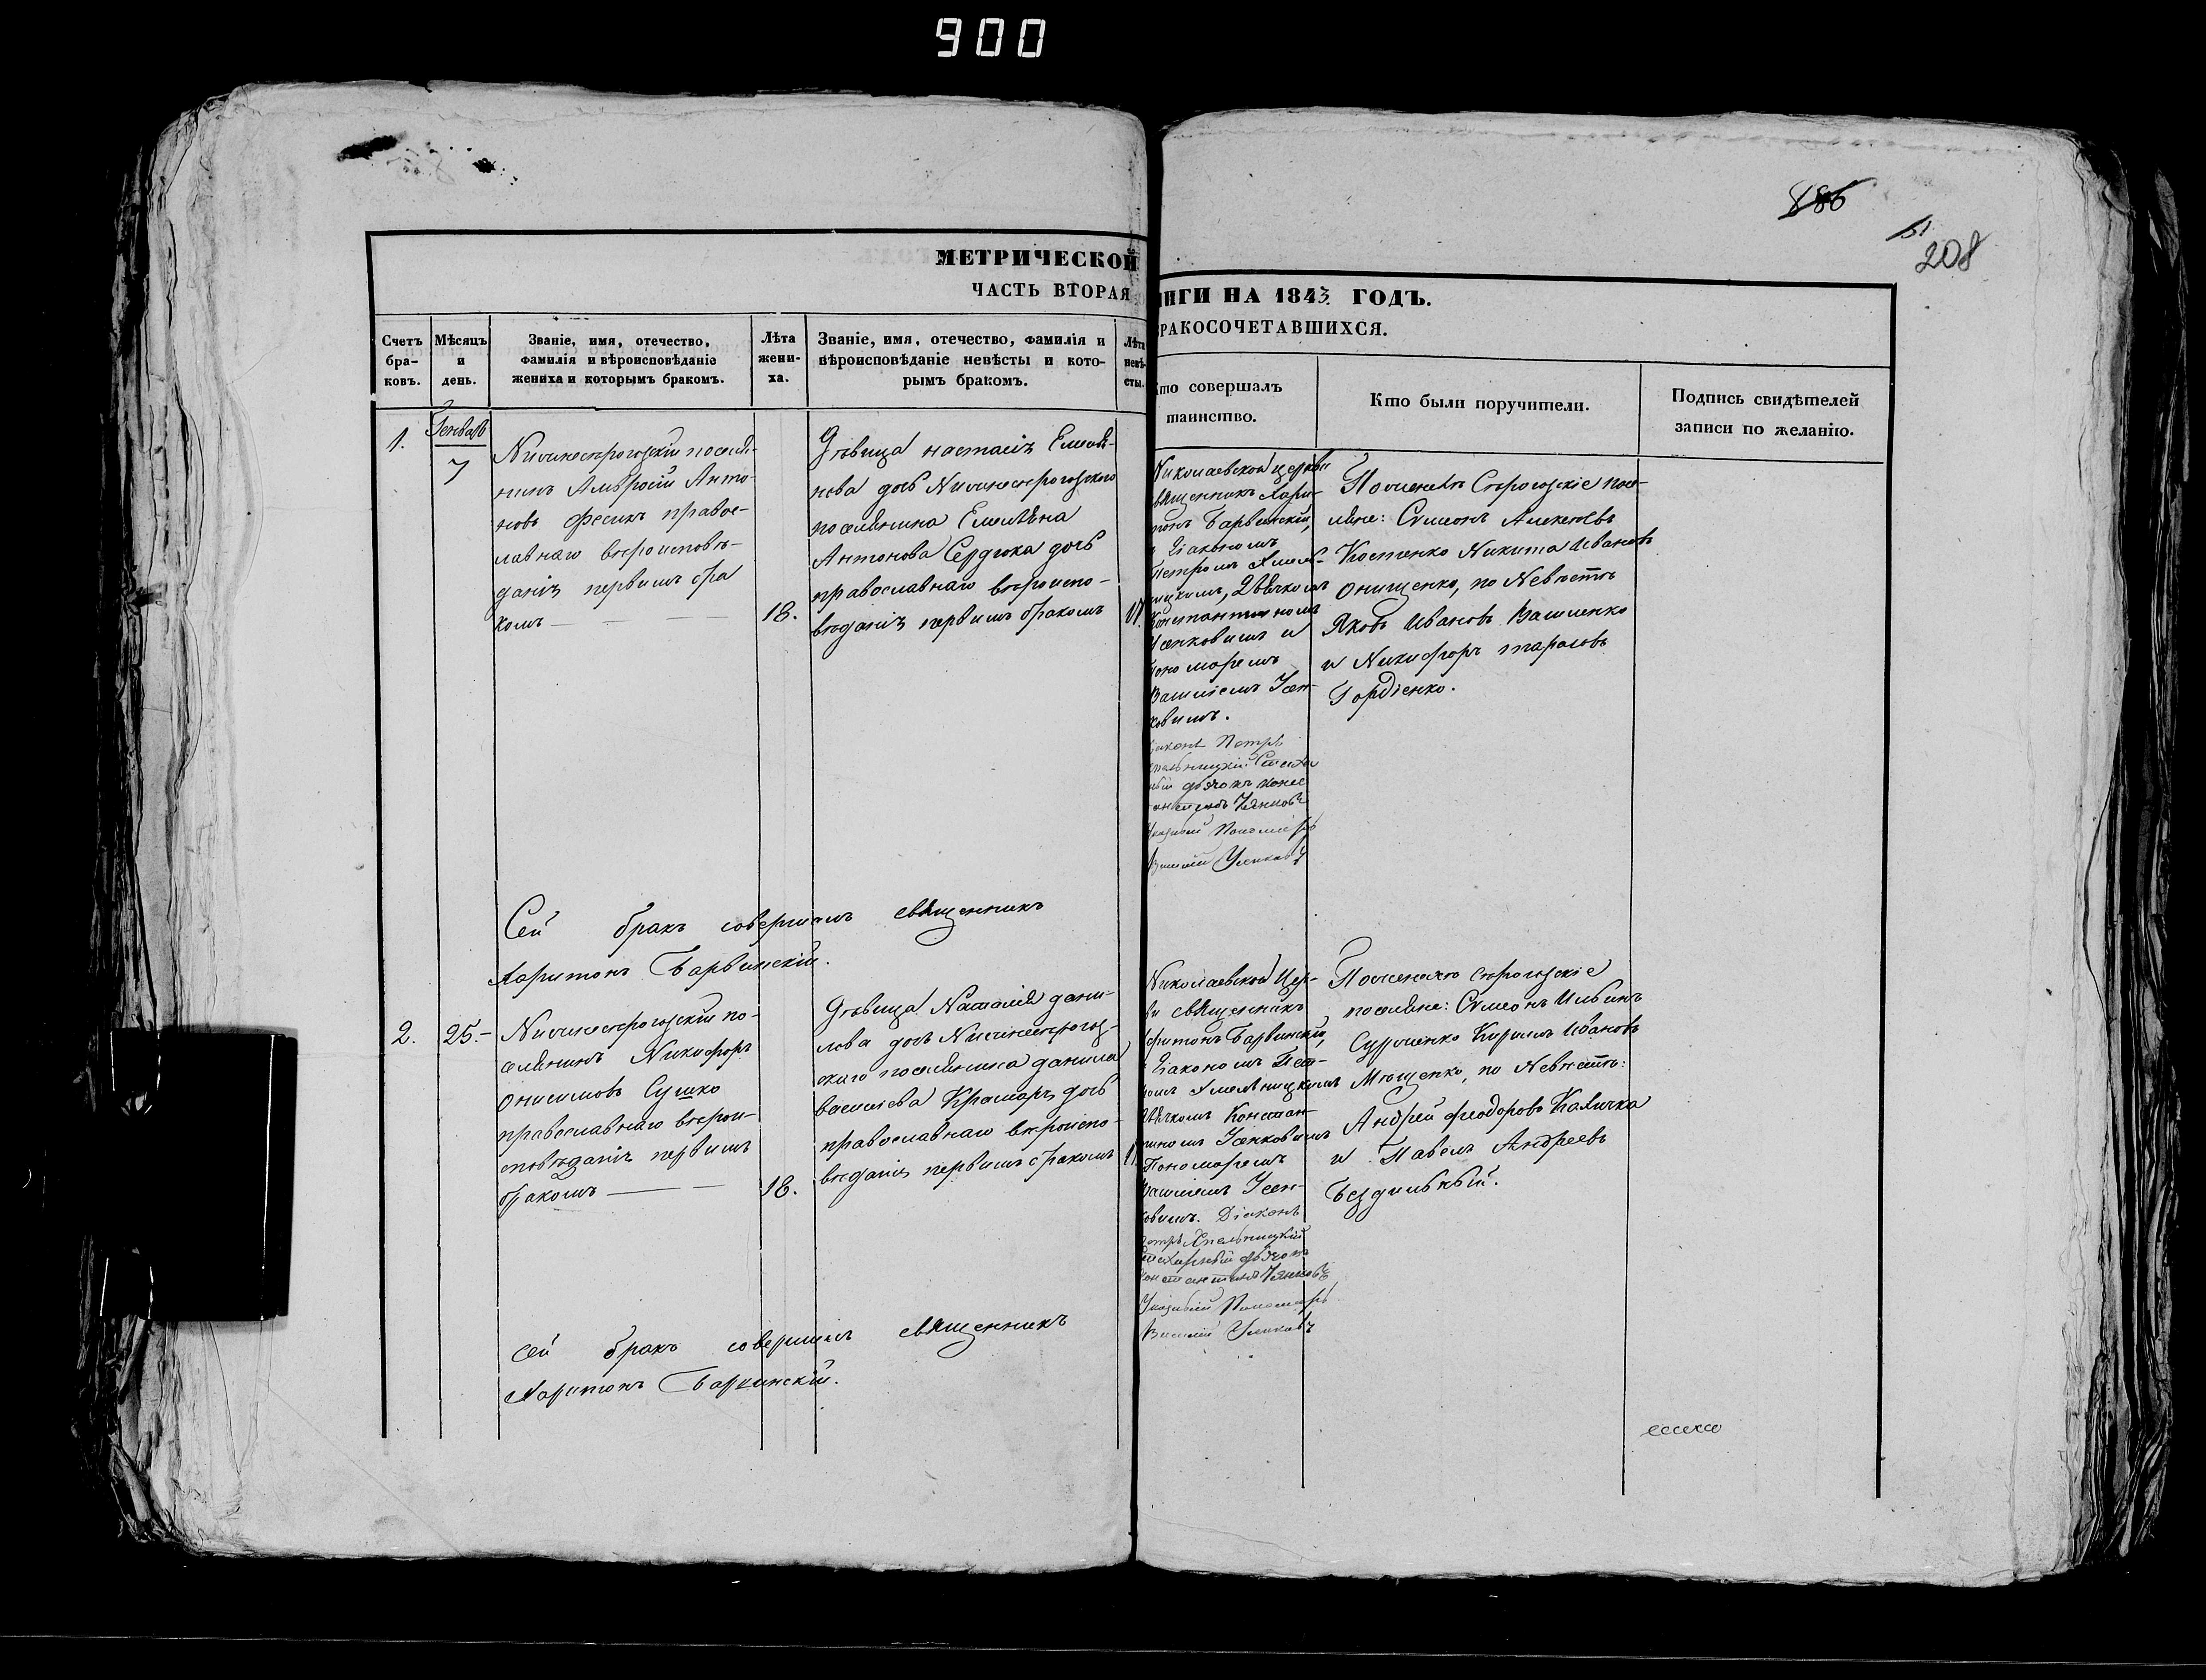 900
886
51
208
МЕТРИЧЕСКОЙ
ЧАСТЬ ВТОРАЯ
НИГИ НА 1843. ГОДЪ.
РАКОСОЧЕТАВШИХСЯ.
Счетъ бра- ковъ.
Мѣсяцъ и день.
Званіе, имя, отечество,
фамилія и вѣроисповѣданіе
жениха и которымъ бракомъ.
Лѣта жени- ха.
Званіе, имя, отечество, фамилія и
вѣроисповѣданіе невѣсты и кото-
рымъ бракомъ.
Лѣта невѣ- сты.
Кто совершалъ
таинство.
Кто были поручители.
Подпись свидѣтелей
записи по желанію.
1.
Генваль
7
Нижнестрогозскій поселя-
нинъ Амвросій Анто-
новъ Фесикъ правос-
лавнаго вѣроисповѣ-
данія первимъ бра
комъ
18.
Дѣвица настасія Емелья-
нова дочь Нижнестрогозского
поселянина Емеляна
Антонова Сердюка дочь
православнаго вѣроиспо-
вѣданія первимъ бракомъ
17.
Николаевской церкви
священникъ Хари-
тонъ Барвинскій,
Діакономъ
Петромъ Хмель-
ницкимъ, Дьячкомъ
Константиномъ
Усенковимъ и
Пономаремъ
Василіемъ Усен-
ковимъ.
Діаконъ Петръ
Хмельницкій Стихар
ный дьячокъ Конс
Указный Пономарь
Василій Усиковъ
По Женихѣ Строгозскіе посе-
ляне: Симеонъ Алексіевъ
Костенко Никита Ивановъ
Онищенко, по Невѣстѣ
Яковъ Ивановъ Вашченко
и Никифоръ тарасовъ
Гордіенко.
Сей бракъ совершилъ священникъ
Харитонъ Барвинскій.
2.
25.-
Нижнестрогозскій по-
селянинъ Никифоръ
Онисимовъ Сушко
православнаго вѣрои-
сповѣданія первимъ
бракомъ
18.
Дѣвица Наталія дани-
лова дочь Нижнестрогоз-
скаго поселянина данила
василіева Крамаря дочь
православнаго вѣроиспо-
вѣданія первимъ бракомъ
Николаевской Цер-
ви священникъ
Харитонъ Барвинскій,
Діакономъ Пет-
ромъ Хмельницкимъ
Дьячкомъ Констан-
тиномъ Усенковимъ
Пономаремъ
Василіемъ Усен-
ковимъ. Діаконъ
Петръ Хмельницкій
Стихарный дьячокъ
Указный Пономарь
Василій Усиковъ
По Женихѣ строгозскіе
поселяне: Симеонъ Ильинъ
Кирилъ Ивановъ
Мищенко, по Невѣстѣ:
Андрей феодоровъ Каличка
и Павелъ Андреевъ
Бездильный.
Сей бракъ совершилъ священникъ
Харитонъ Барвинскій.